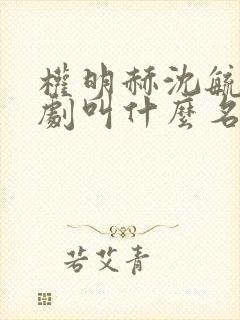 權明赫沈毓
劇叫什麼名
若艾青